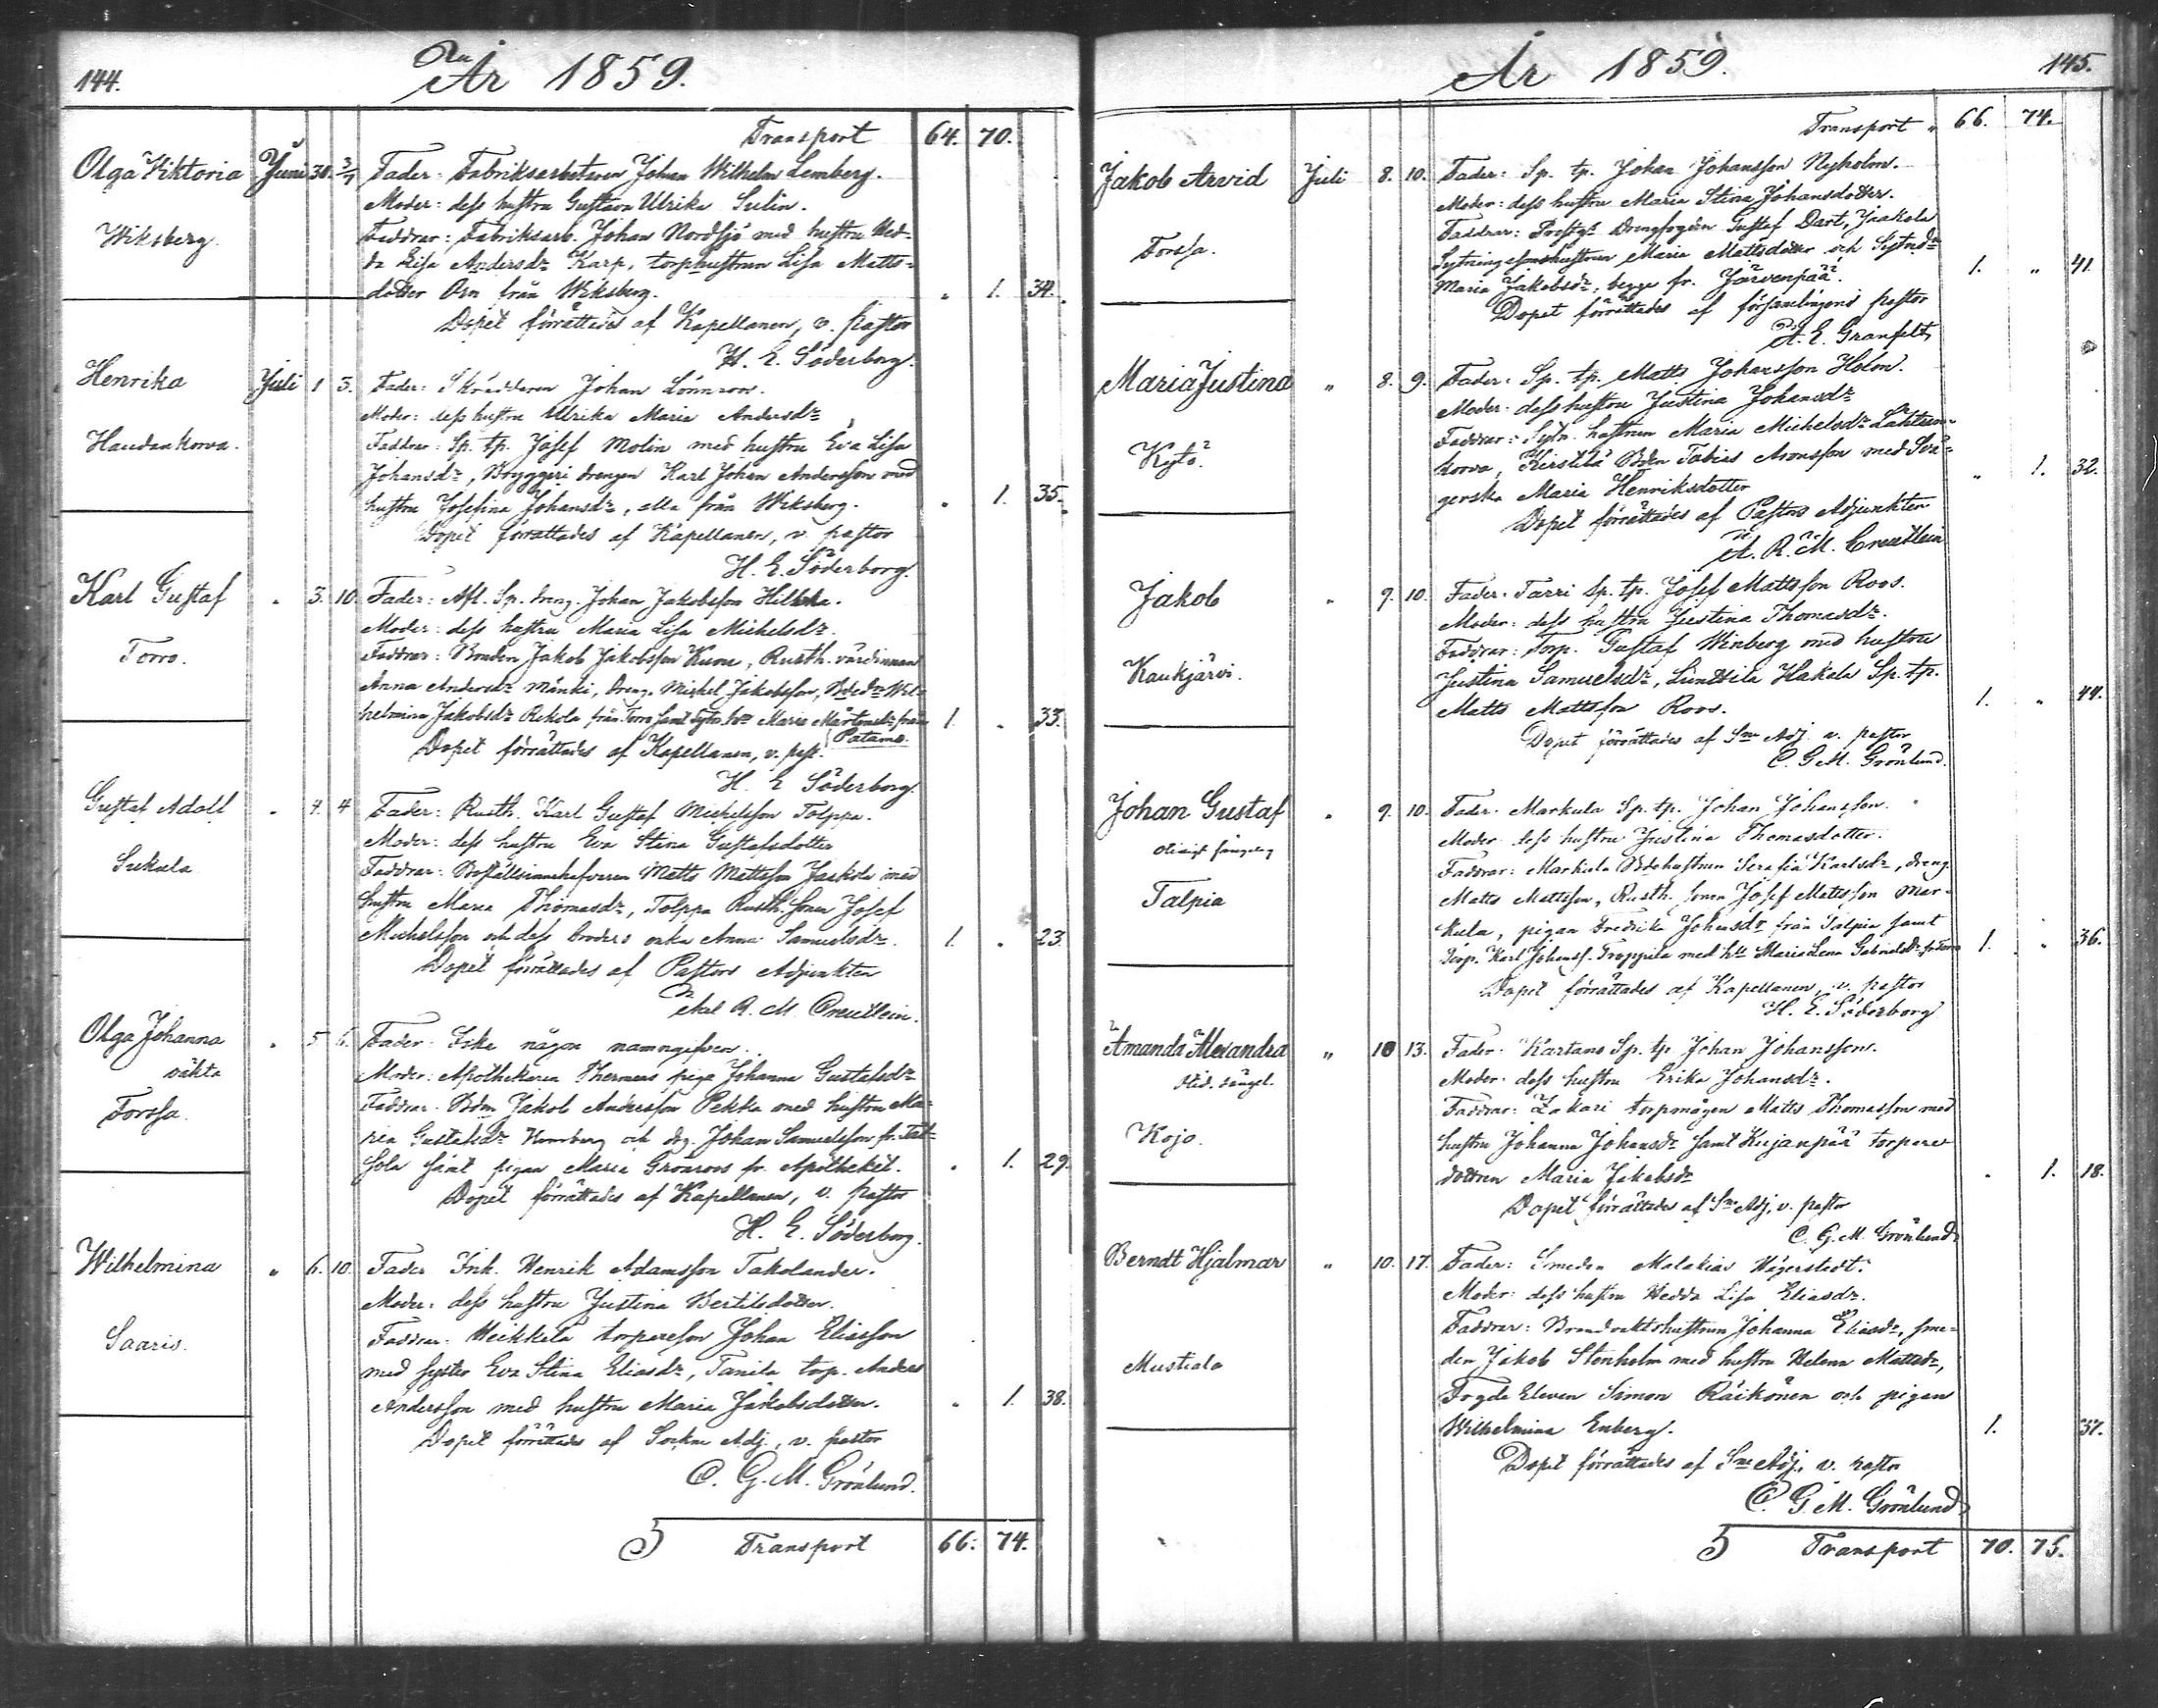 144.
År 1859.
Transport 64. 70.
Olga Viktoria Juni 30. 3/7 Fader: Fabriksarbetaren Johan Wilhelm Lemberg.
Moder: dess hustru Gustava Ulrika Sulin.
Wiksberg. Faddrar: Fabriksarb. Johan Nordsjö med hustru Hed-
da Lisa Andersdr Karp, torphustrun Lisa Matts-
dotter Orn från Wiksberg. " 1. 34.
Dopet förrättades af Kapellanen, v. pastor
H. E. Söderborg.
Henrika Juli 1 3. Fader: Skräddaren Johan Lönnroos.
Moder: dess hustru Ulrika Maria Andersdr
Haudankorva. Faddrar: Sp. tp. Josef Molin med hustru Eva Lisa
Johansdr, Bryggeri drengen Karl Johan Andersson med
hustru Josefina Johansdr, alla från Wiksberg. " 1. 35.
Dopet förrättades af Kapellanen, v. pastor
H. E. Söderborg.
Karl Gustaf " 3. 10. Fader: Afl. Sp. dreng. Johan Jakobsson
Moder: dess hustru Maria Lisa Michelsdr.
Torro. Faddrar: Bonden Jakob Jakobsson Kuone, Rusth. värdinnan
Anna Andersdr Mänki, dreng. Mickel Jakobsson, Wil-
helmina Jakobsdr Rekola från Torro samt Maria Mårtensdr från 1. " 33.
Patamo.
Dopet förrättades af Kapellanen, v. past.
H. E. Söderborg
Gustaf Adolf " 4. 4 Fader: Rusth. Karl Gustaf Michelsson Tolppa.
Moder: dess hustru Eva Stina Gustafsdotter
Sukula Faddrar: Boställsinnehafvaren Matts Mattsson Jaakola med
hustru Maria Thomasdr, Tolppa Rusth. sonen Josef
Michelsson och dess broders enka Anna Samuelsdr. 1. " 23.
Dopet förrättades af Pastors Adjunkten
Axel R. M. Creutlein.
Olga Johanna " 5 6. Fader: Icke någon namngifven.
oäkta Moder: Apothekaren Thermens piga Johanna Gustafsdr
Forssa. Faddrar: Bdn Jakob Andersson Pekka med hustru Ma-
ria Gustafsdr och drg. Johan Samuelsson fr.
sola samt pigan Maria Grönroos fr. Apotheket. " 1. 29.
Dopet förrättades af Kapellanen, v. pastor
H. E. Söderborg.
Wilhelmina " 6. 10. Fader Inh. Henrik Adamsson Takolander.
Moder: dess hustru Justina Bertilsdotter.
Saaris. Faddrar: Heikkilä torpareson Johan Eliasson
med syster Eva Stina Eliasdr, Tanila torp. Anders
Andersson med hustru Maria Jakobsdotter. " 1. 38.
Dopet förrättades af Sockne Adj., v. pastor
C. G. M. Grönlund.
Transport 66. 74.
År 1859. 145.
Transport " 66. 74.
Jakob Arvid Juli 8. 10. Fader: Sp. tp. Johan Johansson Nyholm.
Moder: dess hustru Maria Stina Johansdotter.
Forssa. Faddrar: Drengfogden Gustaf Dart, Jaakola
Sytningsmshustrun Maria Mattsdotter och
Maria Jakobsdr, begge fr. Järvenpää. 1. " 41.
Dopet förrättades af församlingens pastor
A. E. Granfelt
Maria Justina " 8. 9. Fader: Sp. tp. Matts Johansson Holm.
Moder: dess hustru Justina Johansdr
Kytö. Faddrar: Sytn. hustrun Maria Michelsdr
korva, Kerstilä Bdn Tobias Aronsson med Svä-
gerska Maria Henriksdotter " 1. 32.
Dopet förrättades af Pastors Adjunkten
A. R. M. Creutlein
Jakob " 9. 10. Fader. Tarri Sp. tp. Josef Mattsson Roos.
Moder: dess hustru Justina Thomasdr.
Kaukjärvi. Faddrar: Torp. Gustaf Winberg med hustru
Justina Samuelsdr, Hakala Sp. tp.
Matts Mattsson Roos. 1. " 44.
Dopet förrättades af Sne Adj. v. pastor
C. G. M. Grönlund.
Johan Gustaf " 9. 10. Fader. Markula Sp. tp. Johan Johansson.
Moder dess hustru Justina Thomasdotter.
Talpia Faddrar: Markula Bdehustrun Serafia Karlsdr, dreng.
Matts Mattsson, Rusth. sonen Josef Mattsson Mar-
kula, pigan Fredrika Johansdr från Talpia samt
Torp. Karl Johanss. Troppila med hu Maria Lena Gabrielsdr fr. Torro 1. " 36.
Dopet förrättades af Kapellanen, v. pastor
H. E. Söderborg
Amanda Alexandra " 10 13. Fader. Kartano Sp. tp Johan Johansson.
Moder. dess hustru Erika Johansdr.
Kojo. Faddrar: Zakari torpmågen Matts Thomasson med
hustru Johanna Johansdr samt Kujanpää torpare
dottren Maria Jakobsdr " 1. 18.
Dopet förrättades af Sne Adj, v. pastor
C. G. M. Grönlund
Berndt Hjalmar " 10. 17. Fader: Smeden Malakias Hägerstedt.
Moder: dess hustru Hedda Lisa Eliasdr.
Mustiala Faddrar: Brandvaktshustrun Johanna Eliasdr, sme-
den Jakob Stenholm med hustru Helena Mattsdr,
Fogde Eleven Simon Räikönen och pigan
Wilhelmina Enberg. 1. 37.
Dopet förrättades af Sne Adj. v. pastor
C. G. M. Grönlund
Transport 70. 75.